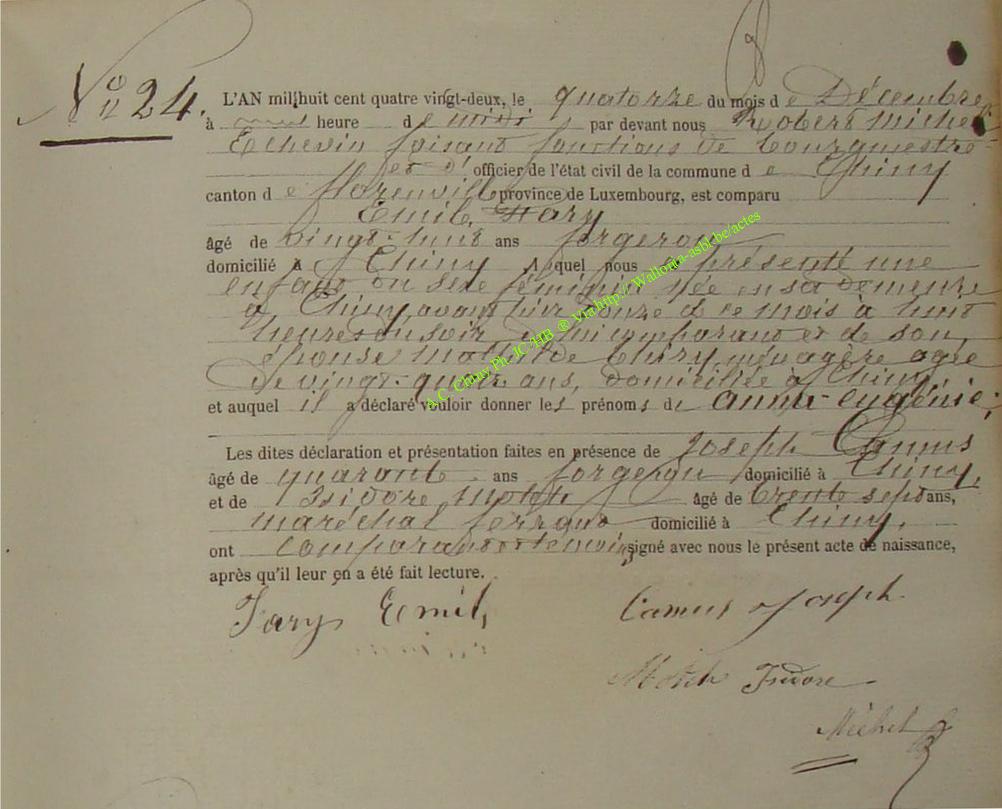 N° 24.
L'AN mil huit cent quatre vingt-deux, le quatorze du mois de Décembre
à heure de midi par devant nous Robert Michel
Echevin faisant fonctions de bourgmestre
et d' officier de l'état civil de la commune de Chiny
canton de florenville province de Luxembourg, est comparu
Emile Jary
âgé de vingt-huit ans forgeron
domicilié à Chiny lequel nous a présenté une
enfant du sexe féminin née en sa demeure
à Chiny, avant hier douze de ce mois à huit
heures du soir, de lui comparant et de son
épouse Thiry, ménagère agée
de vingt-quatre ans, domiciliée à Chiny
et auquel il a déclaré vouloir donner les prénoms de anna-eugénie;
Les dites déclaration et présentation faites en présence de Joseph Camus
âgé de quarante ans forgeron domicilié à Chiny,
et de Isidore âgé de trente sept ans,
maréchal ferrant domicilié à Chiny,
ont comparant et témoins signé avec nous le présent acte de naissance,
après qu'il leur en a été fait lecture.
Jary Emile
Camus Joseph
Isidore
Michel
A.C. Chiny Ph. IC/HB ® Via http://Wallonia-asbl.be/actes